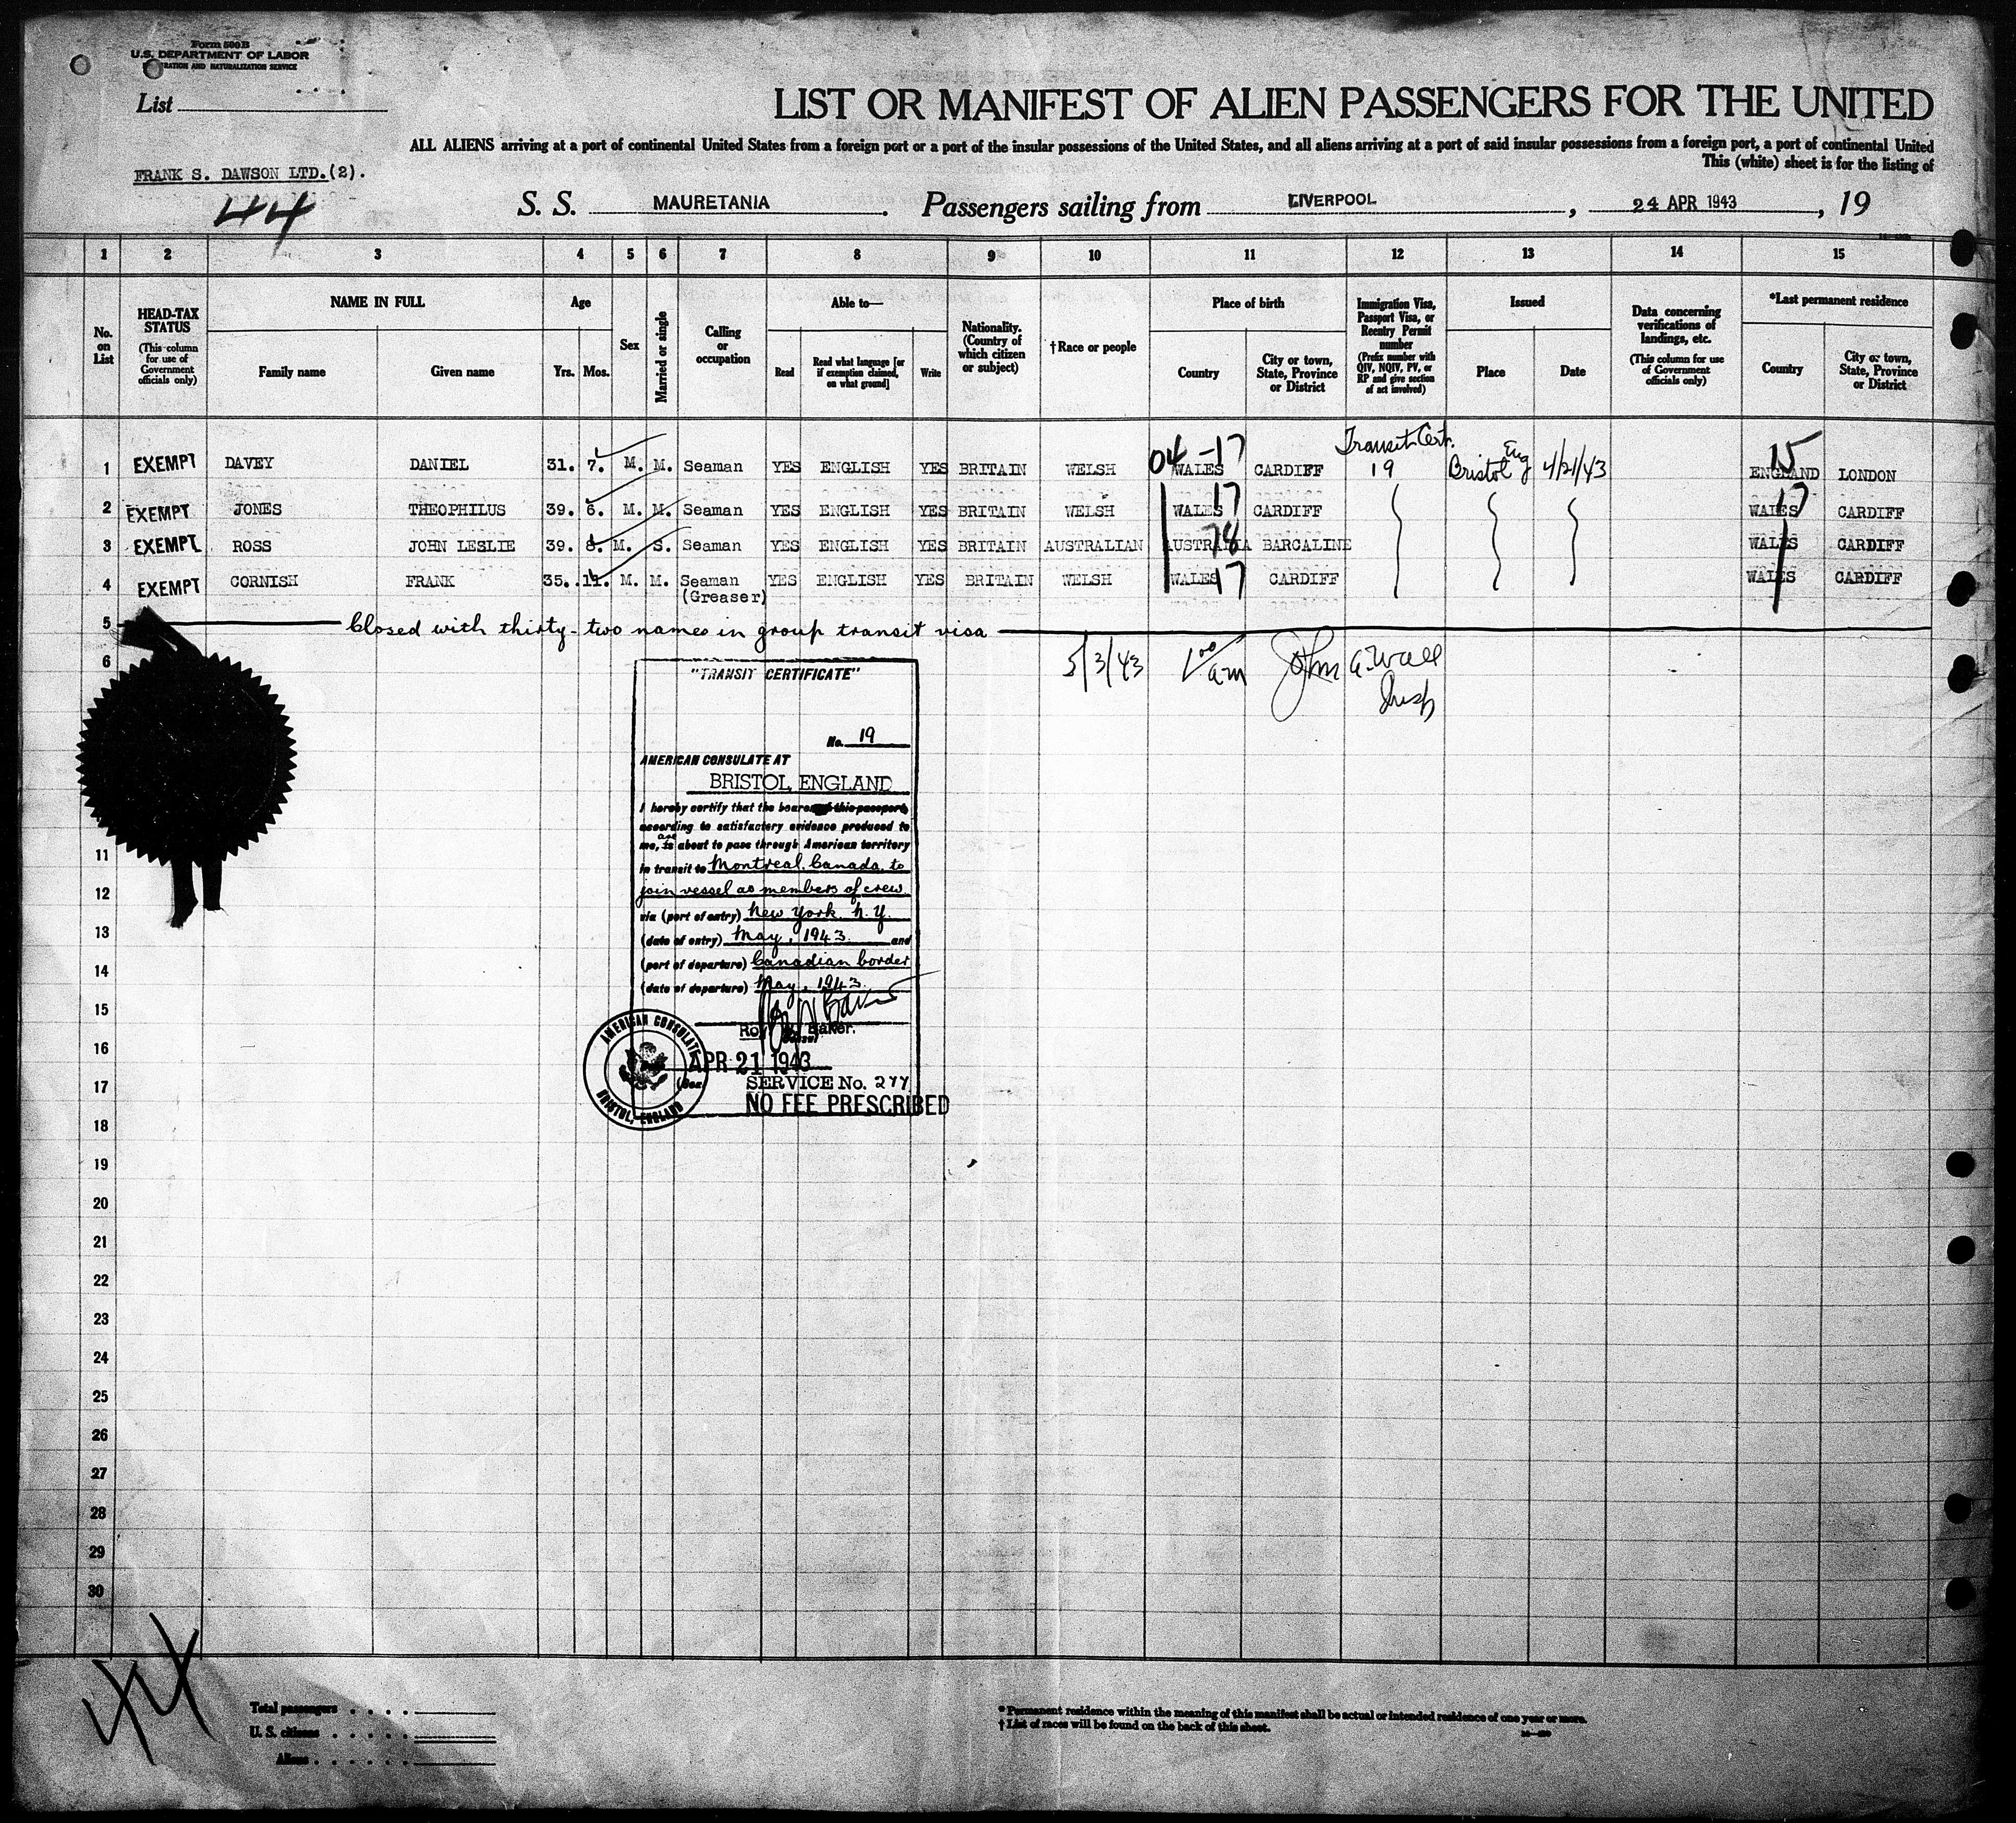 Form 500B
U.S. DEPARTMENT OF LABOR
IMMIGRATION AND NATURALIZATION SERVICE
List
LIST OR MANIFEST OF ALIEN PASSENGERS FOR THE UNITED
ALL ALIENS arriving at a port of continental United States from a foreign port or a port of the insular possessions of the United States, and all aliens arriving at a port of said insular possessions from a foreign port, a port of continental United
This (white) sheet is for the listing of
FRANK S. DAWSON LTD.(2).
44
S. S. MAURETANIA. Passengers sailing from LIVERPOOL, 24 APR 1943, 19
1 2 3 4 5 6 7 8 9 10 11 12 13 14 15
No. on List
HEAD-TAX STATUS (This column for use of Government officials only)
NAME IN FULL
Family name Given name
Age
Yrs. Mos.
Sex
Married or single
Calling or occupation
Able to—
Read Read what language [or if exemption claimed, on what ground] Write
Nationality. (Country of which citizen or subject)
†Race or people
Place of birth
Country City or town, State, Province or District
Immigration Visa, Passport Visa, or Reentry Permit number (Prefix number with QIV, NQIV, PV, or RP and give section of act involved)
Issued
Place Date
Data concerning verifications of landings, etc. (This column for use of Government officials only)
*Last permanent residence
Country City or town, State, Province or District
Transit Cert.
04 -17 15
1 EXEMPT DAVEY DANIEL 31. 7. M. M. Seaman YES ENGLISH YES BRITAIN WELSH WALES CARDIFF 19 Bristol Eng 4/21/43 ENGLAND LONDON
2 EXEMPT JONES THEOPHILUS 39. 6. M. M. Seaman YES ENGLISH YES BRITAIN WELSH WALES 17 CARDIFF WALES 17 CARDIFF
3 EXEMPT ROSS JOHN LESLIE 39. 8. M. S. Seaman YES ENGLISH YES BRITAIN AUSTRALIAN AUSTRALIA 78 BARCALINE WALES CARDIFF
4 EXEMPT CORNISH FRANK 35. 11. M. M. Seaman YES ENGLISH YES BRITAIN WELSH WALES 17 CARDIFF WALES CARDIFF
(Greaser)
5 Closed with thirty-two names in group transit visa
6 5/3/43 1 00 am John A. Wall
Insp
"TRANSIT CERTIFICATE"
No. 19
AMERICAN CONSULATE AT
BRISTOL, ENGLAND
I hereby certify that the bearer of this passport,
according to satisfactory evidence produced to
me, is are about to pass through American territory
in transit to Montreal, Canada, to
join vessel as members of crew
via (port of entry) New York, N.Y.
(date of entry) May, 1943 and
(port of departure) Canadian border
(date of departure) May, 1943.
Roy W. Baker.
Consul
APR 21 1943
SERVICE No. 277
NO FEE PRESCRIBED
AMERICAN CONSULATE
BRISTOL, ENGLAND
11
12
13
14
15
16
17
18
19
20
21
22
23
24
25
26
27
28
29
30
44
Total passengers
U. S. citizens
Aliens
* Permanent residence within the meaning of this manifest shall be actual or intended residence of one year or more.
† List of races will be found on the back of this sheet.